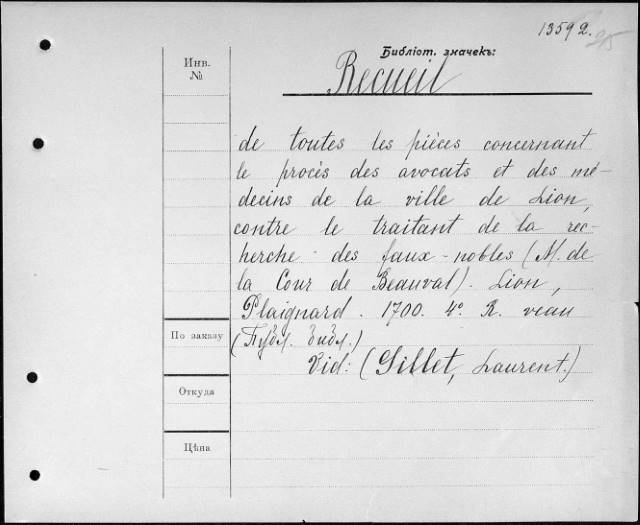 13592.
Библіот. значекъ:
Инв.
№
Recueil
de toutes les pièces concernant
le procès des avocats et des mé-
decins de la ville de Lion,
contre le traitant de la rec-
herche des faux-nobles (M. de
la Cour de Beauval). Lion,
Plaignard. 1700. 4º. R. veau
По заказу
(Публ. библ.)
Vid: (Gillet, Laurent.)
Откуда
Цѣна